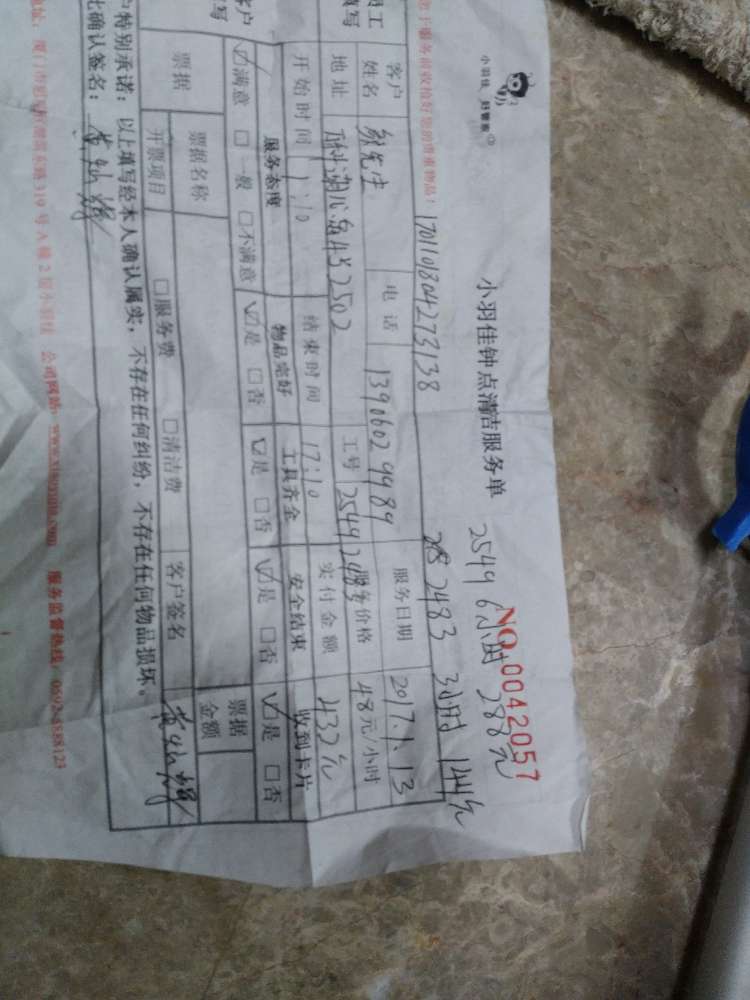 小羽佳 好管家
小羽佳钟点清洁服务单
NO.0042057
2549 6小时 288元
2483 3小时 144元
服务前收捡好您的贵重物品!
1701101804273138
客户姓名 先生 电话 13906029989 服务日期 2017.1.13
地址 湖心岛 2502 工号 2549 2483 服务价格 48元/小时
开始时间 11:10 结束时间 17:10 实付金额 432元
服务态度 物品完好 工具齐全 安全结束 收到卡片
☑满意 □一般 □不满意 ☑是 □否 ☑是 □否 ☑是 □否 ☑是 □否
票据 票据名称 票据金额
开票项目 □服务费 □清洁费 客户签名
户特别承诺:以上填写经本人确认属实,不存在任何纠纷,不存在任何物品损坏。
此确认签名:
厦门市 319号A幢2层小羽佳 公司网站: 服务监督热线:0592-5888123